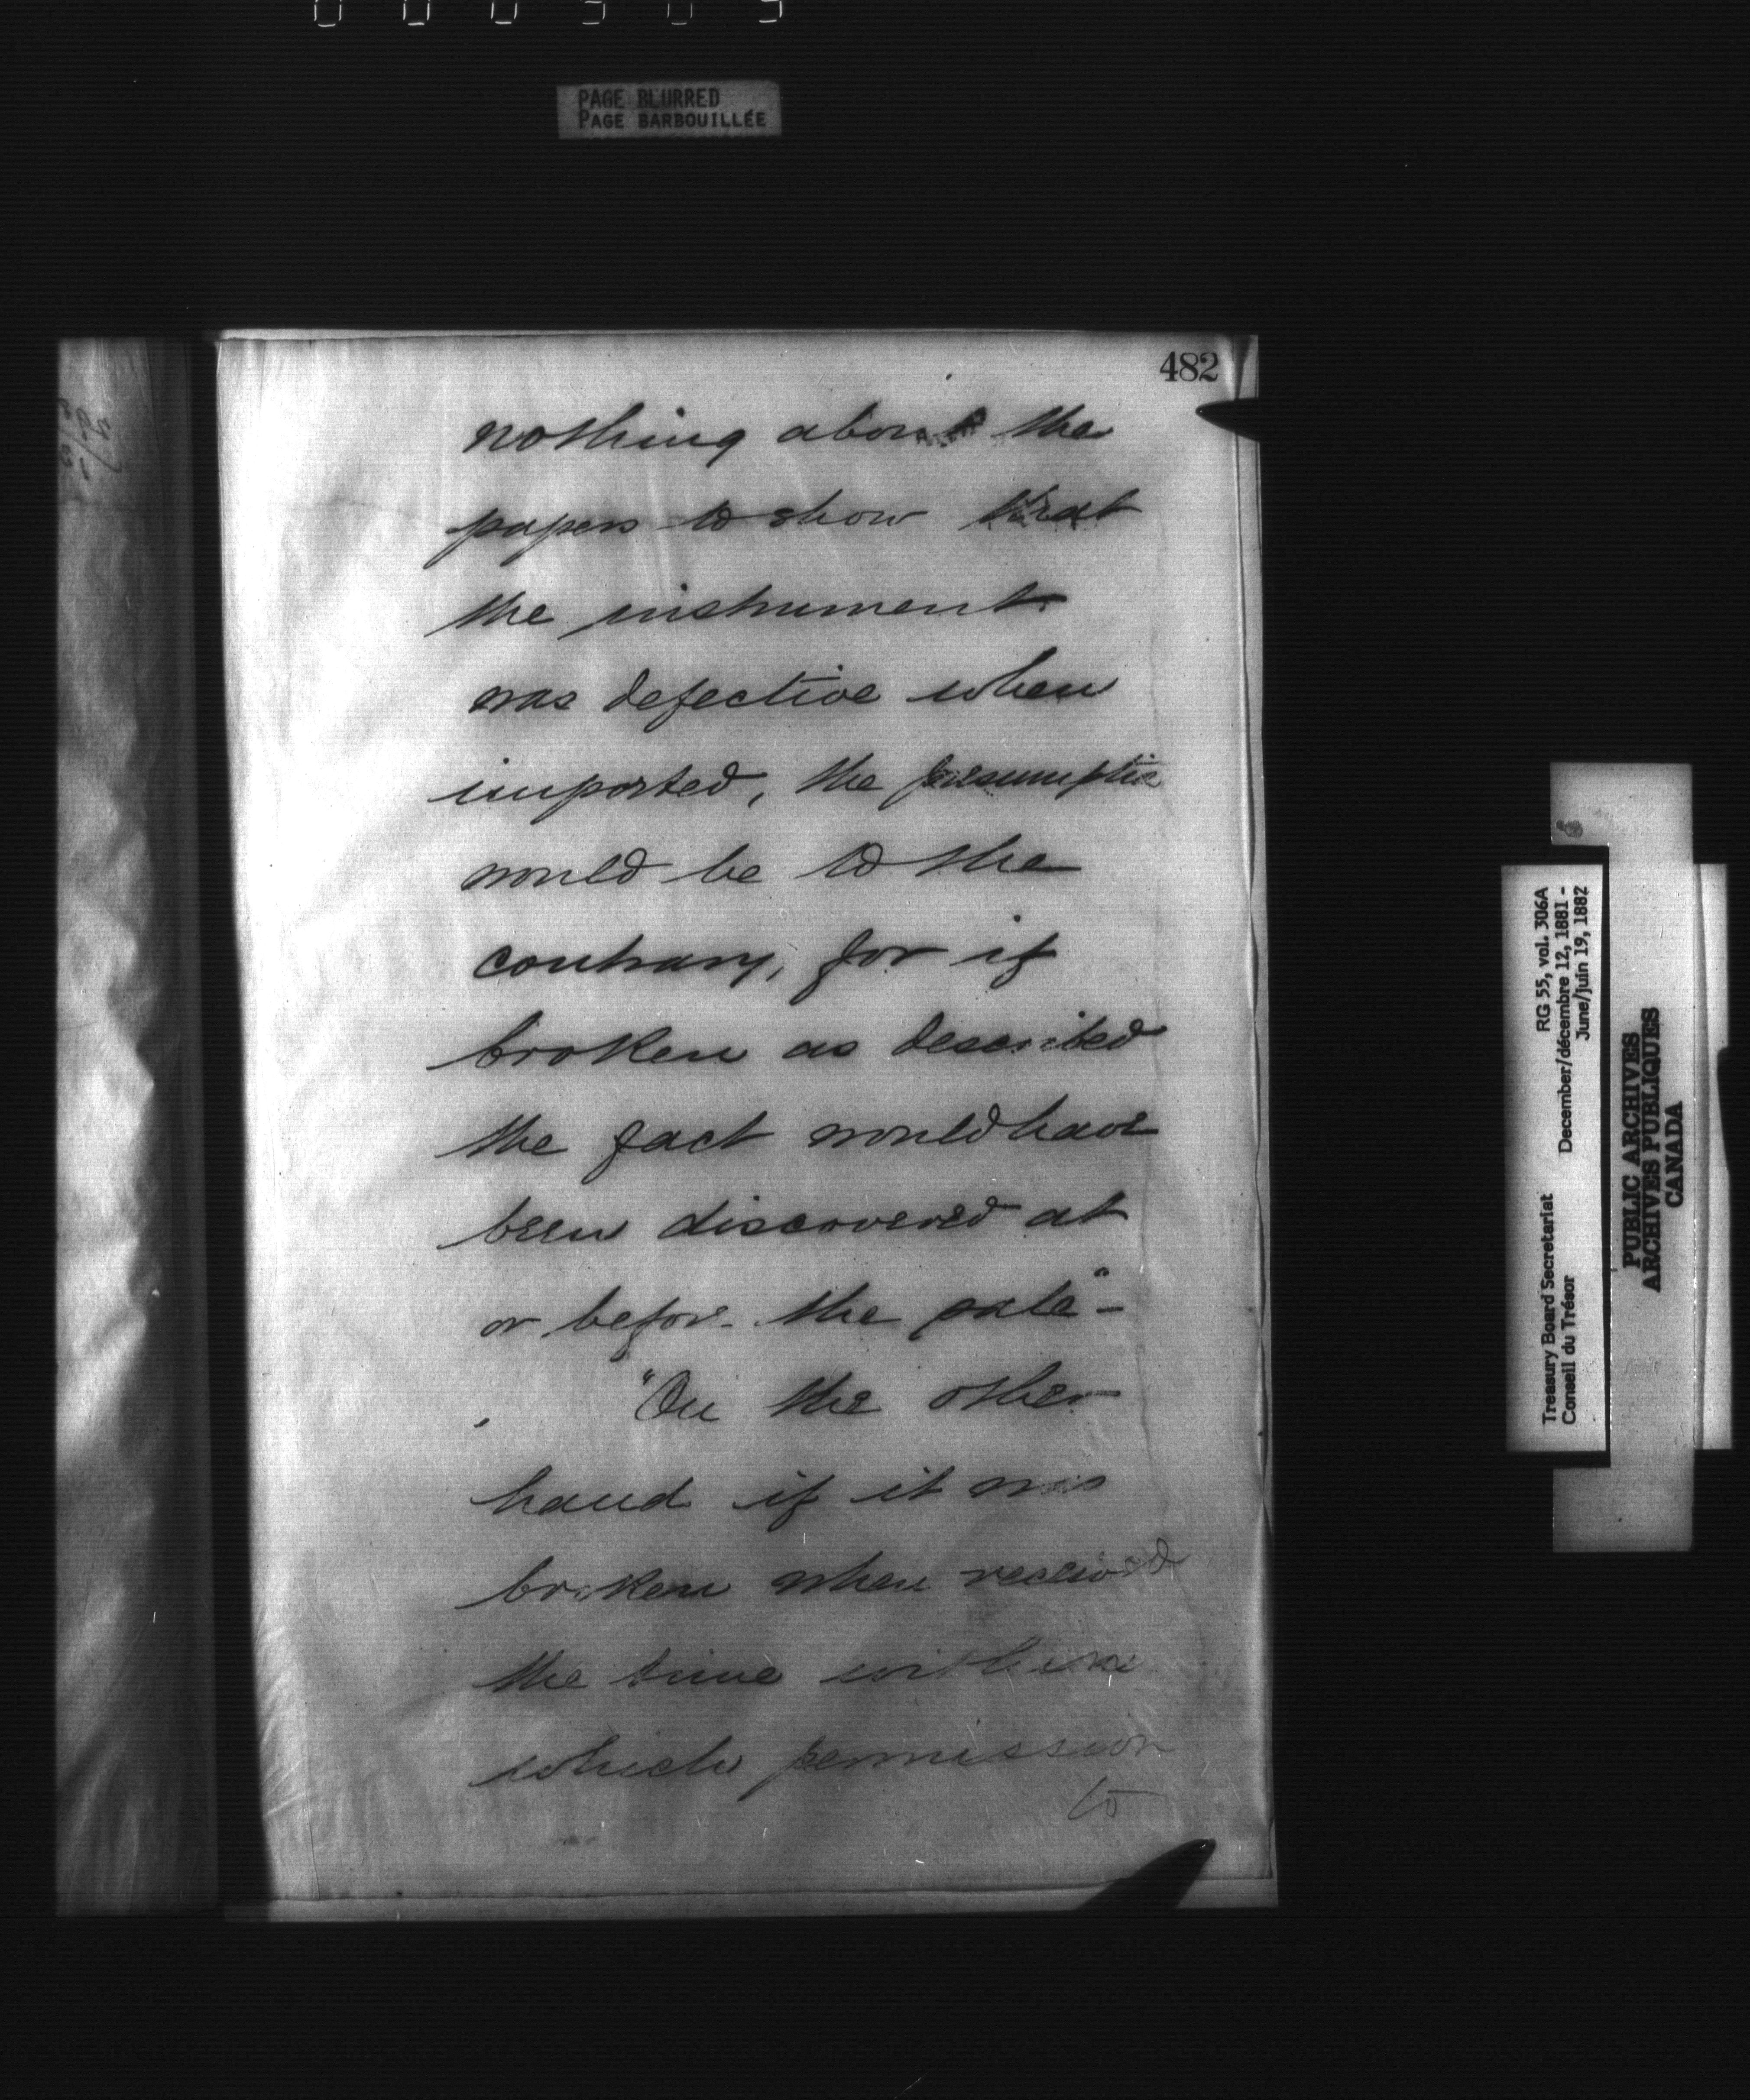 PAGE BLURRED
PAGE BARBOUILLÉE
482
nothing about the
papers to show that
the instrument
was defective when
imported, the presumptio
would be to the
contrary, for if
broken as described
the fact would have
been discovered at
or before the sale"-
"On the other
hand if it was
broken when received
the time within
which permission
to
Treasury Board Secretariat RG 55, vol. 306A
Conseil du Trésor December/décembre 12, 1881 -
June/juin 19, 1882
PUBLIC ARCHIVES
ARCHIVES PUBLIQUES
CANADA